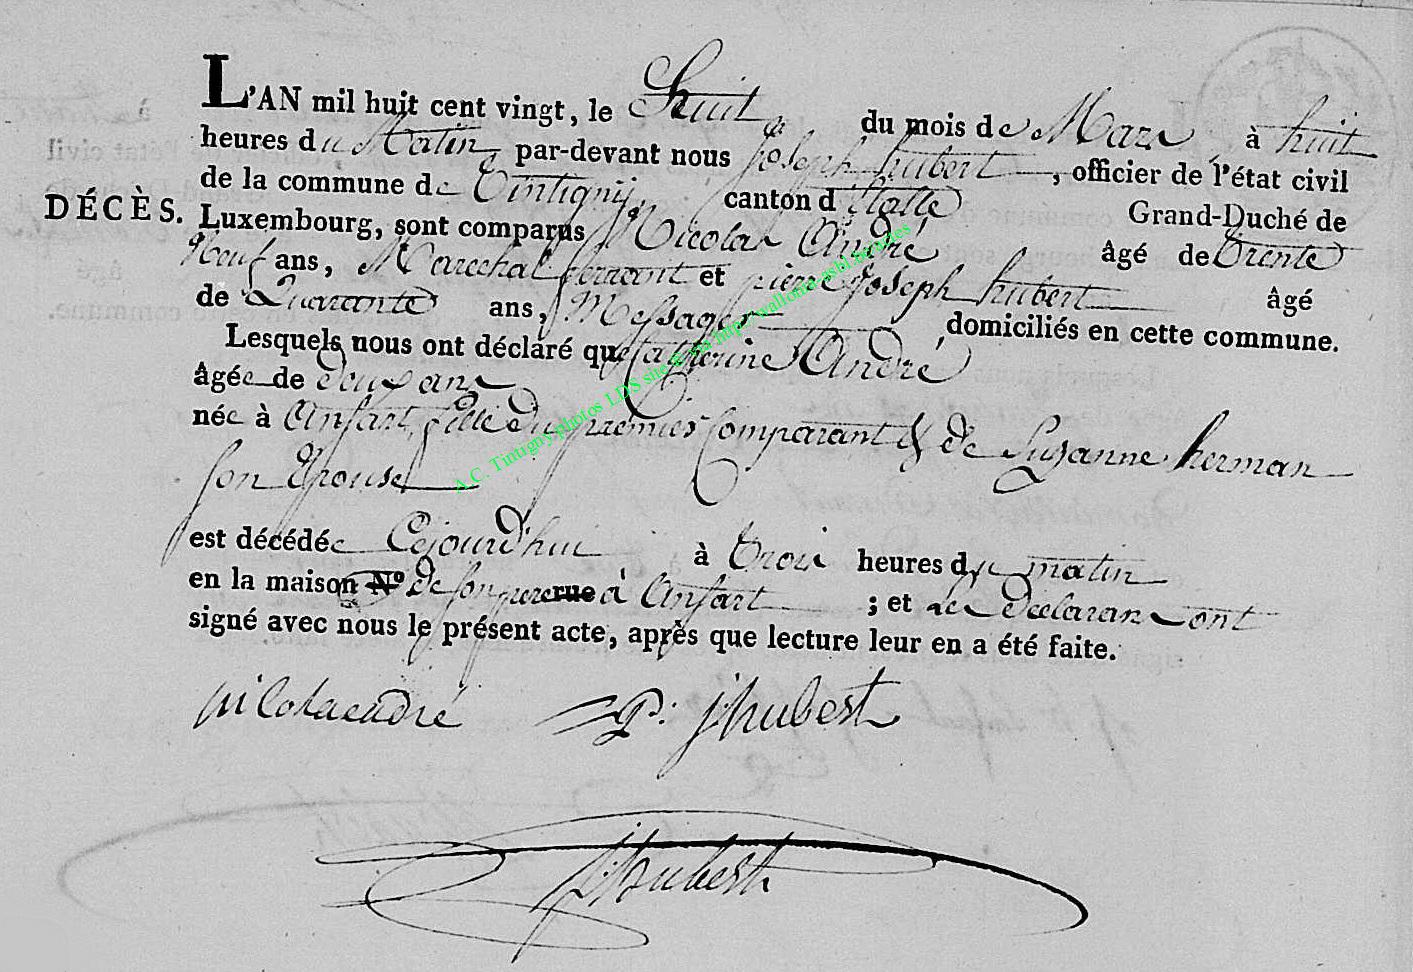 L'AN mil huit cent vingt, le huit du mois de Mars à huit
heures du Matin par-devant nous Joseph hubert, officier de l'état civil
DÉCÈS.
de la commune de Tintigny canton d'Etalle Grand-Duché de
Luxembourg, sont comparus Nicolas André âgé de Trente
Neuf ans, Marechal ferrant et pierre Joseph hubert âgé
de Quarante ans, Messager domiciliés en cette commune.
Lesquels nous ont déclaré que Catherine André
âgée de Deux ans
née à Ansart fille du premier Comparant & de Suzanne herman
Son Epouse
est décédée Cejourd'hui à Trois heures du matin
en la maison N° de son pere rue à Ansart ; et les Declarans ont
signé avec nous le présent acte, après que lecture leur en a été faite.
nicolaeadré P: j hubert
J hubert
A.C. Tintigny photos LDS site & via http://wallonia-asbl.be/actes